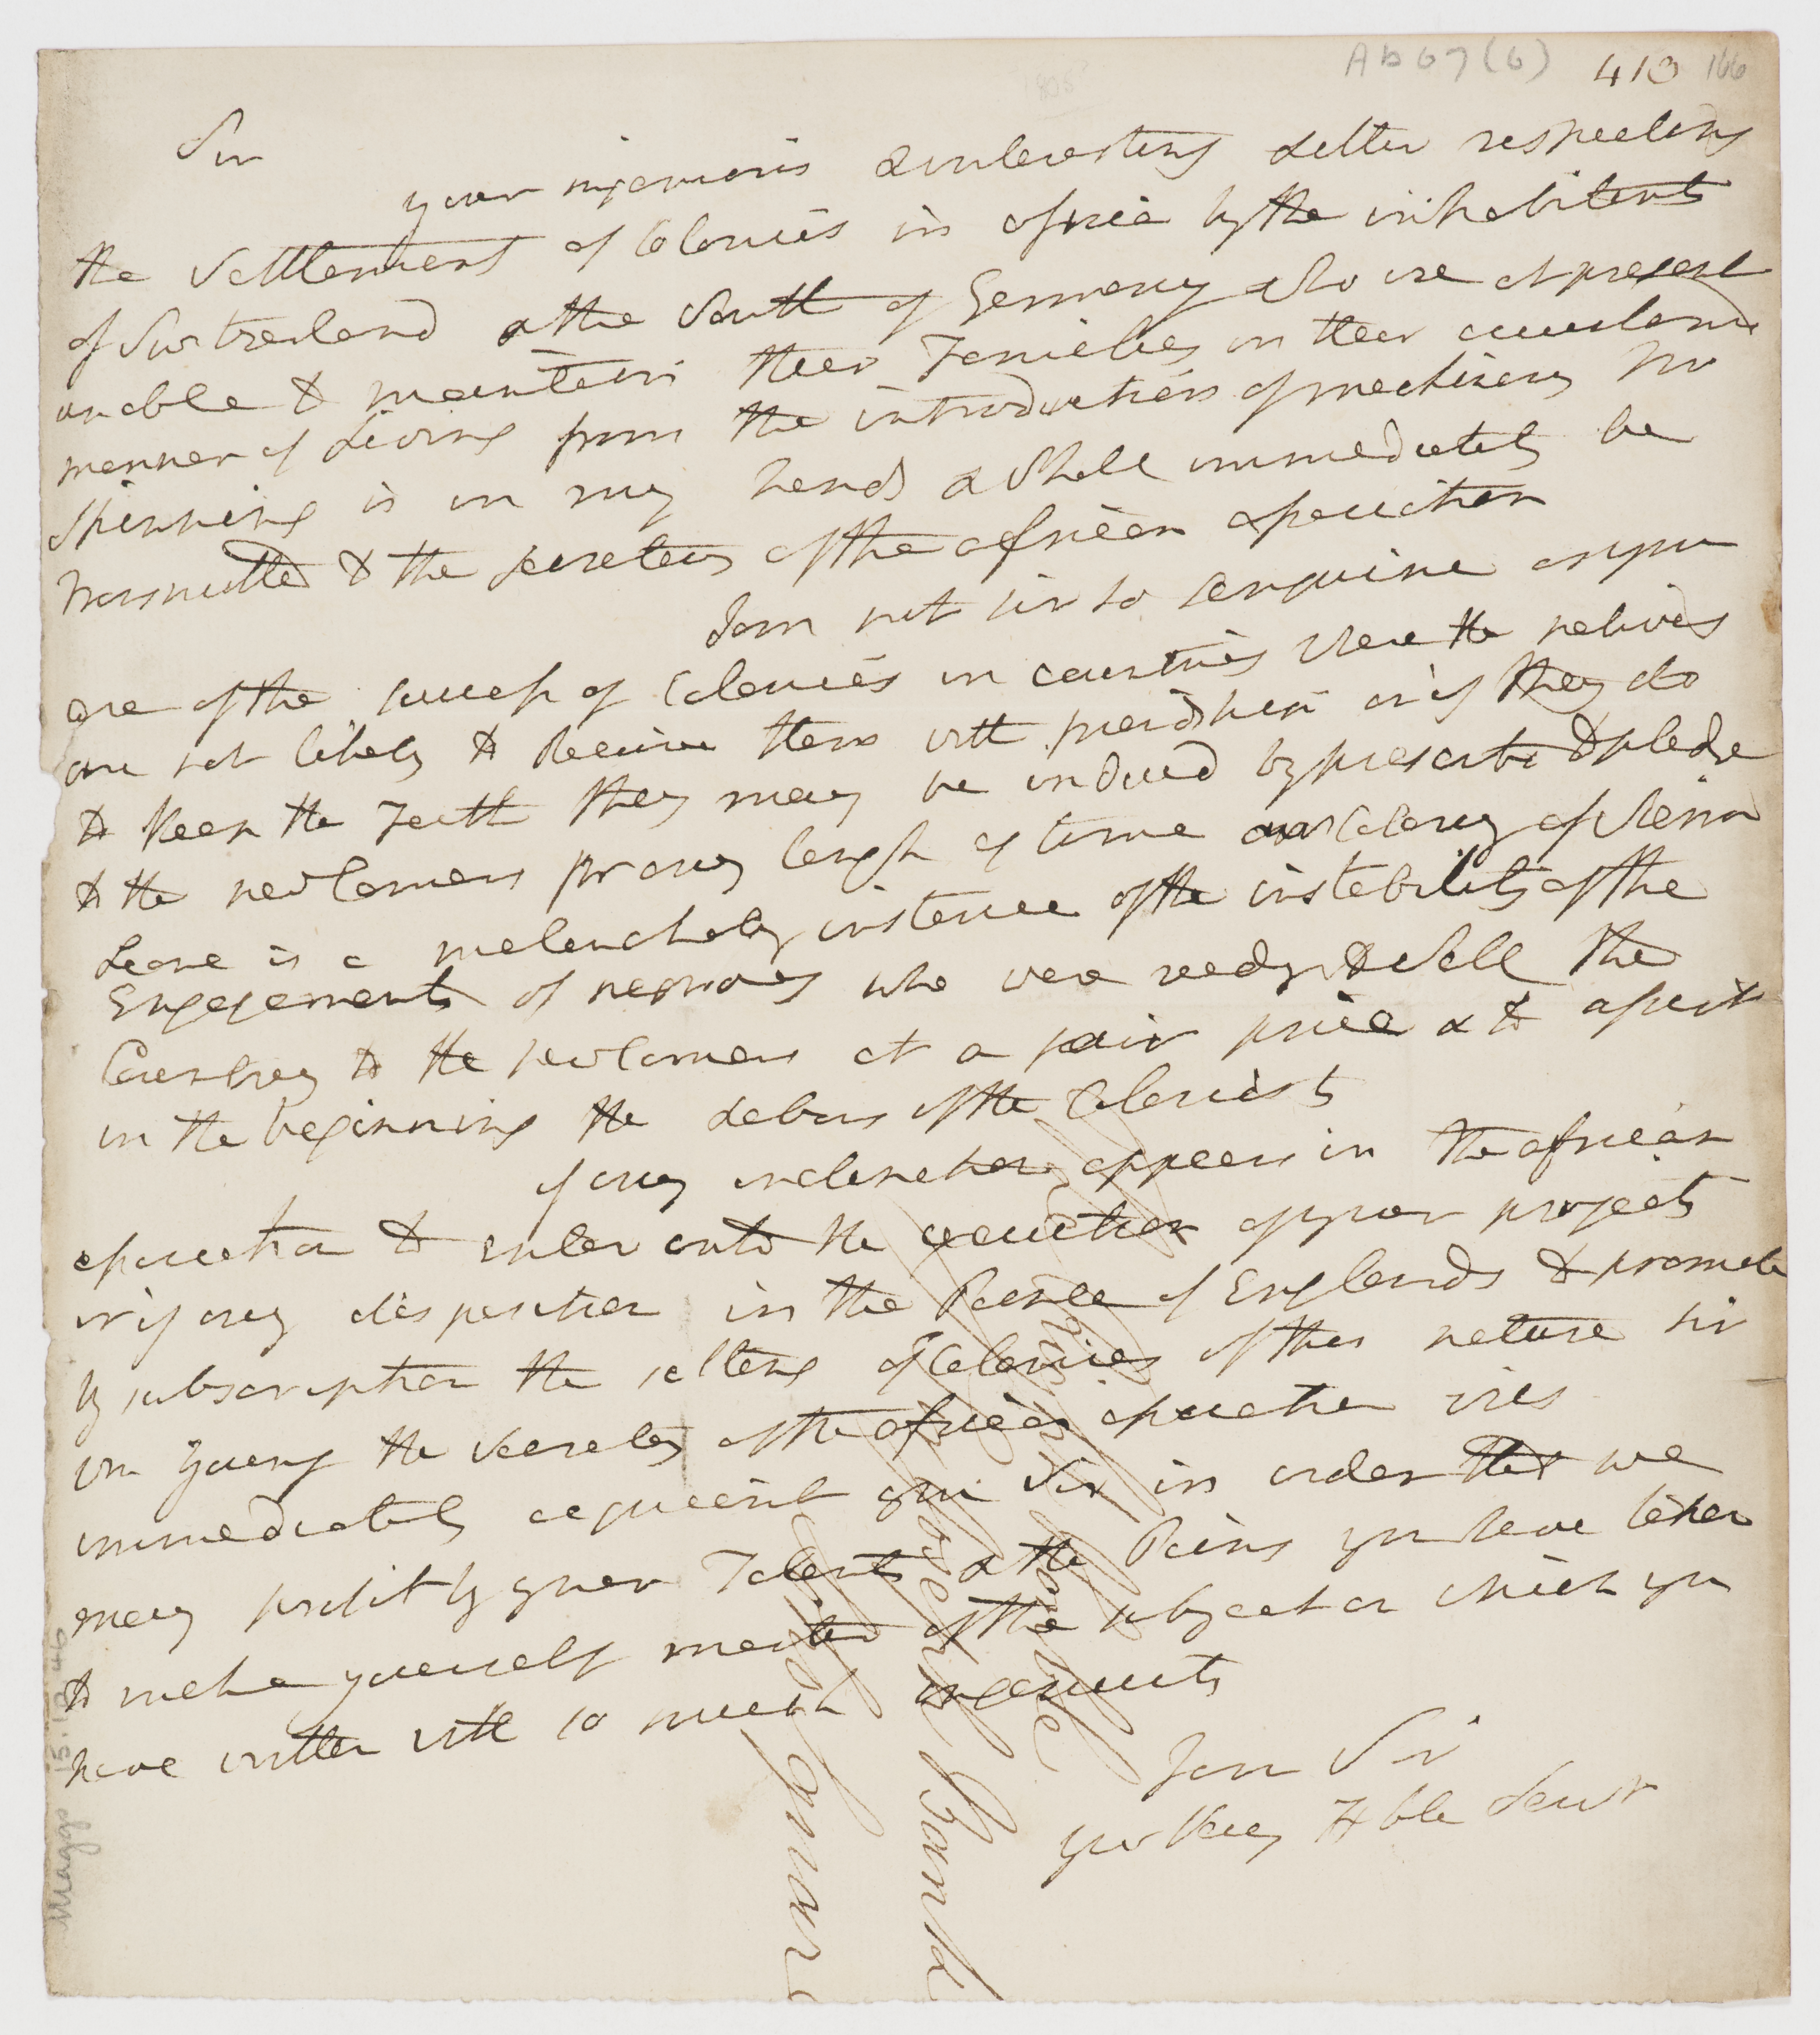 Ab 67 (6) 410 166
Sir
your ingenious & interesting Letter respecting
the Settlement of Colonies in africa by the inhabitants
of Switzerland & the South of Germany who are at present
unable to maintain their Families in their accustomd
manner of Living from the introduction of machinery for
Spinning is in my hands & Shall immediately be
transmitted to the secretary of the african association
I am not sir so sanguine as you
are of the success of Colonies in countries where the natives
are not likely to Receive them with friendship or if they do
to keep the Faith they may be induced by presents to pledge
to the newcomers for any length of time our Colony of Sierra
Leone is a melancholy instance of the instability of the
Engagements of negroes who were ready to Sell the
Country to the newcomers at a fair price & to assist
in the beginning the Labors of the Colonists
if any inclination appears in the african
association to enter into the execution of your projects
or if any disposition in the People of England to promote
by subscription the setting of Colonies of this nature Sir
Wm Young the Secretary of the african association will
immediately acquaint you Sir in order that we
may profit by your Talents & the Pains you have taken
to make yourself master of the subject on which you
have written with so much ingenuity
I am Sir
your Very Hble Servt
Joseph Banks
Maggs 15.10.46